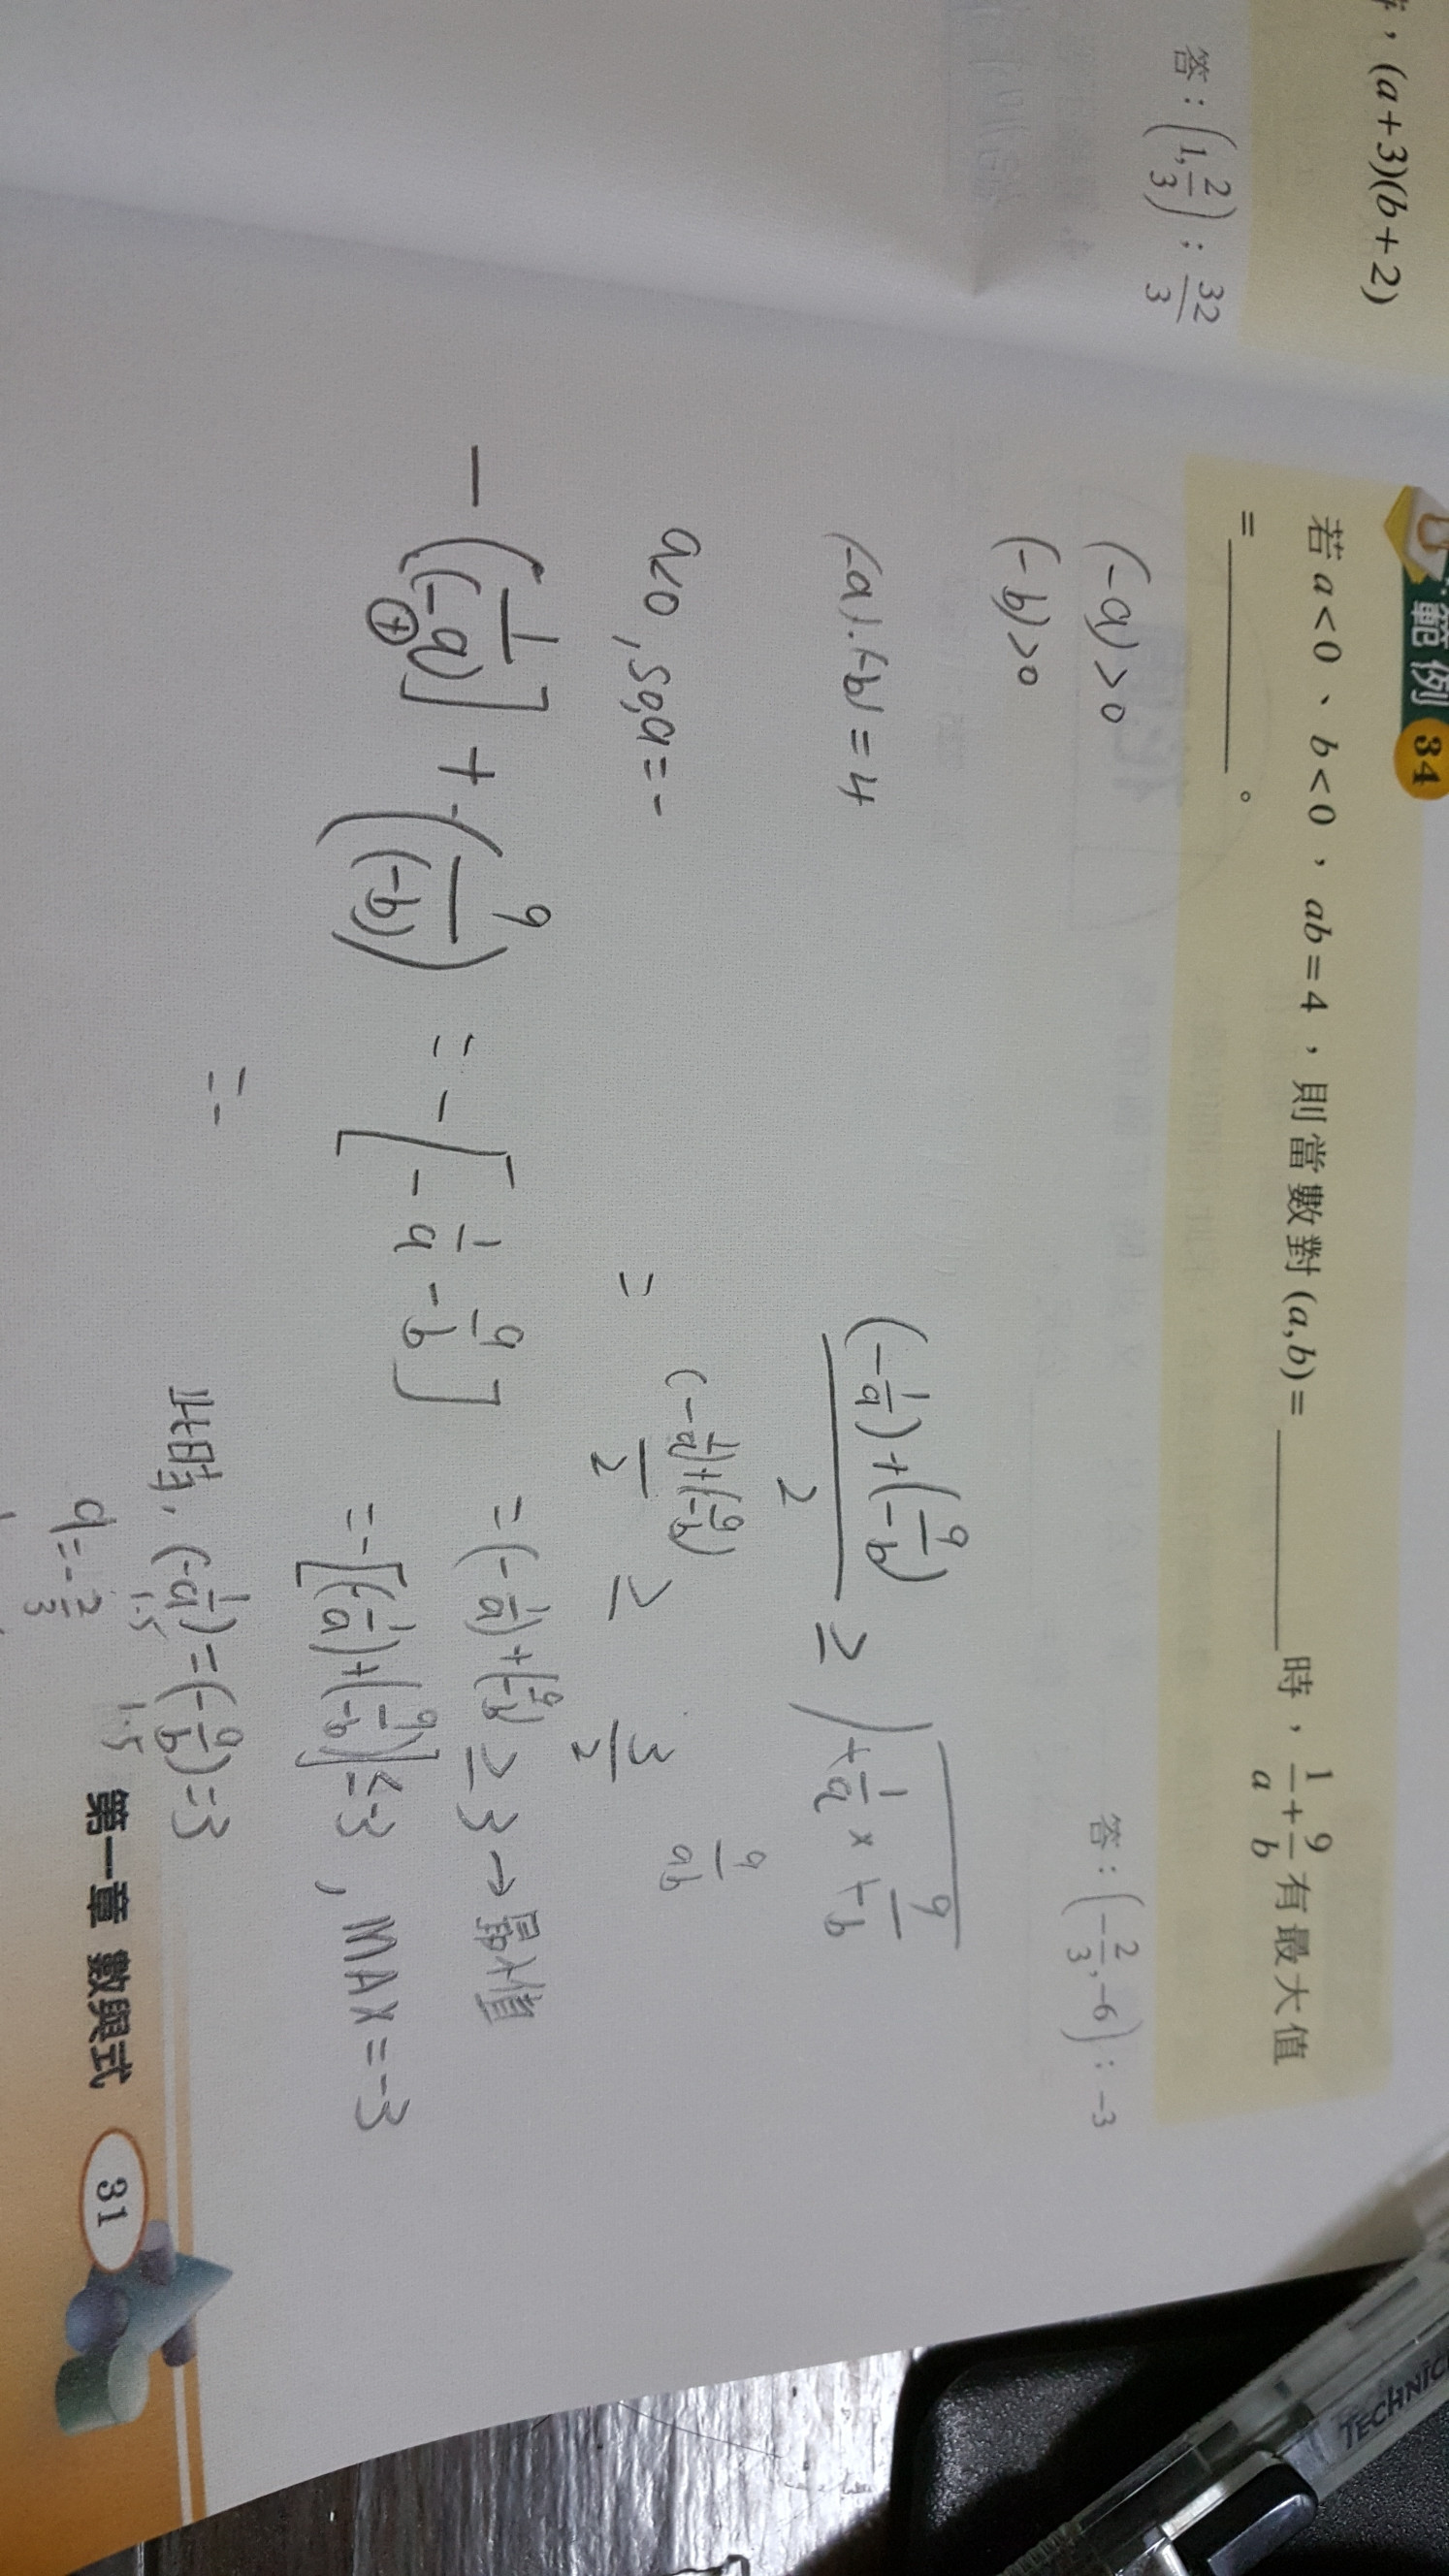 ，(a+3)(b+2)
答：(1, 2/3)；32/3
範例 34
若 a<0、b<0，ab=4，則當數對 (a,b)=________ 時，1/a+9/b 有最大值
=________。
答：(-2/3, -6)；-3
(-a)>0
(-b)>0
(-a)(-b)=4
((-1/a)+(9/-b))/2 ≥ √(+1/a × 9/-b)
a<0, so, a=-
= ((-1/a)+(9/-b))/2 ≥ 3/2
9/ab
-(1/(-a)]+(9/(-b)) = -[-1/a-9/b] = (-1/a)+(9/-b) ≥ 3→最大值
=-[(-1/a)+(9/-b)]≤-3, MAX=-3
=-
此時, (-1/a)=(-9/b)=3
1.5 1.5
a=-2/3
第一章 數與式 31
TECHNIC